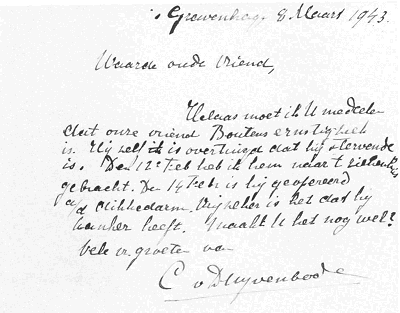 's Gravenhage 8 Maart 1943.
Waarde oude vriend,
Helaas moet ik U mededeelen
dat onze vriend Boutens ernstig ziek
is. Hij zelf is overtuigd dat hij stervende
is. Den 12e Feb heb ik hem naar 't ziekenhuis
gebracht. De 14 Feb. is hij geopereerd
a/d dikkedarm. Vrij zeker is het dat hij
kanker heeft. Maakt U het nog wel?
Vele v. groeten van
C v Duyvenbode